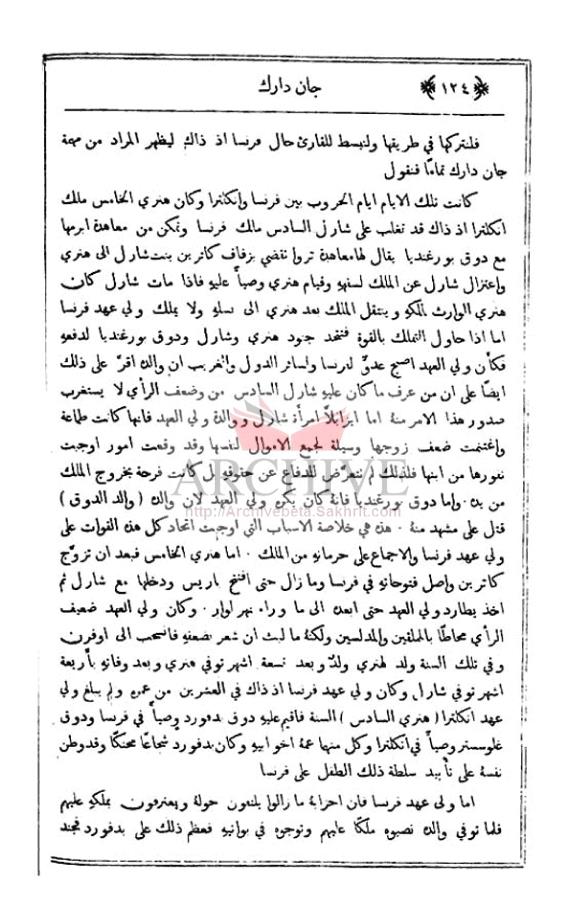 ﴿١٢٤﴾ جان دارك
فلنتركها في طريقها ولنبسط للقارئ حال فرنسا اذ ذاك ليظهر المراد من مهمة
جان دارك تمامًا فنقول
كانت تلك الايام ايام الحروب بين فرنسا وانكلترا وكان هنري الخامس ملك
انكلترا اذ ذاك قد تغلب على شارل السادس مالك فرنسا وتمكن من معاهدة ابرمها
مع دوق بورغنديا يقال لها معاهدة تروا تقضي بزفاف كاترين بنت شارل الى هنري
واعتزال شارل عن الملك لسفهه وقيام هنري وصيًا عليه فاذا مات شارل كان
هنري الوارث لملكه وينتقل الملك بعد هنري الى نسله ولا يملك ولي عهد فرنسا
اما اذا حاول التملك بالقوة فتتحد جنود هنري وشارل ودوق بورغنديا لدفعه
فكأن ولي العهد اصبح عدوًّا لفرنسا ولسائر الدول والغريب ان والده اقرّ على ذلك
ايضًا على ان من عرف ما كان عليه شارل السادس من وضعف الرأي لا يستغرب
صدور هذا الامر منه اما ايزابلا امرأة شارل ووالدة ولي العهد فانها كانت طماعة
واغتنمت ضعف زوجها وسيلة لجمع الاموال لنفسها وقد وقعت امور اوجبت
نفورها من ابنها فلذلك لم تتعرض للدفاع عن حقوقه بل كانت فرحة بخروج الملك
من يده واما دوق بورغنديا فانه كان يكره ولي العهد لان والده (والد الدوق)
ARCHIVE
http://Archivebeta.Sakhrit.com
قتل على مشهد منه . هذه هي خلاصة الاسباب التي اوجبت اتحاد كل هذه القوات على
ولي عهد فرنسا والاجماع على حرمانه من الملك . اما هنري الخامس فبعد ان تزوّج
كاترين واصل فتوحاته في فرنسا وما زال حتى افتتح باريس ودخلها مع شارل ثم
اخذ يطارد ولي العهد حتى ابعده الى ما وراء نهر لوار . وكان ولي العهد ضعيف
الرأي محاطًا بالملقين والمدلسين ولكنه ما لبث ان شعر بضعفه فانسحب الى اوفرن
وفي تلك السنة ولد لهنري ولدٌ وبعد تسعة اشهر توفي هنري وبعد وفاته بأربعة
اشهر توفي شارل وكان ولي عهد فرنسا اذ ذاك في العشرين من عمره ولم يبلغ ولي
عهد انكلترا (هنري السادس) السنة فاقيم عليه دوق بدفورد وصيًا في فرنسا ودوق
غلوسستر وصيًا في انكلترا وكل منهما عمه اخو ابيه وكان بدفورد شجاعًا محنكًا وقد وطن
نفسه على تأييد سلطة ذلك الطفل على فرنسا
اما ولي عهد فرنسا فان احزابه ما زالوا يلتفون حوله ويعترفون بملكه عليهم
فلما توفي والده نصبوه ملكًا عليهم وتوجوه في بواتيه فعظم ذلك على بدفورد فجند